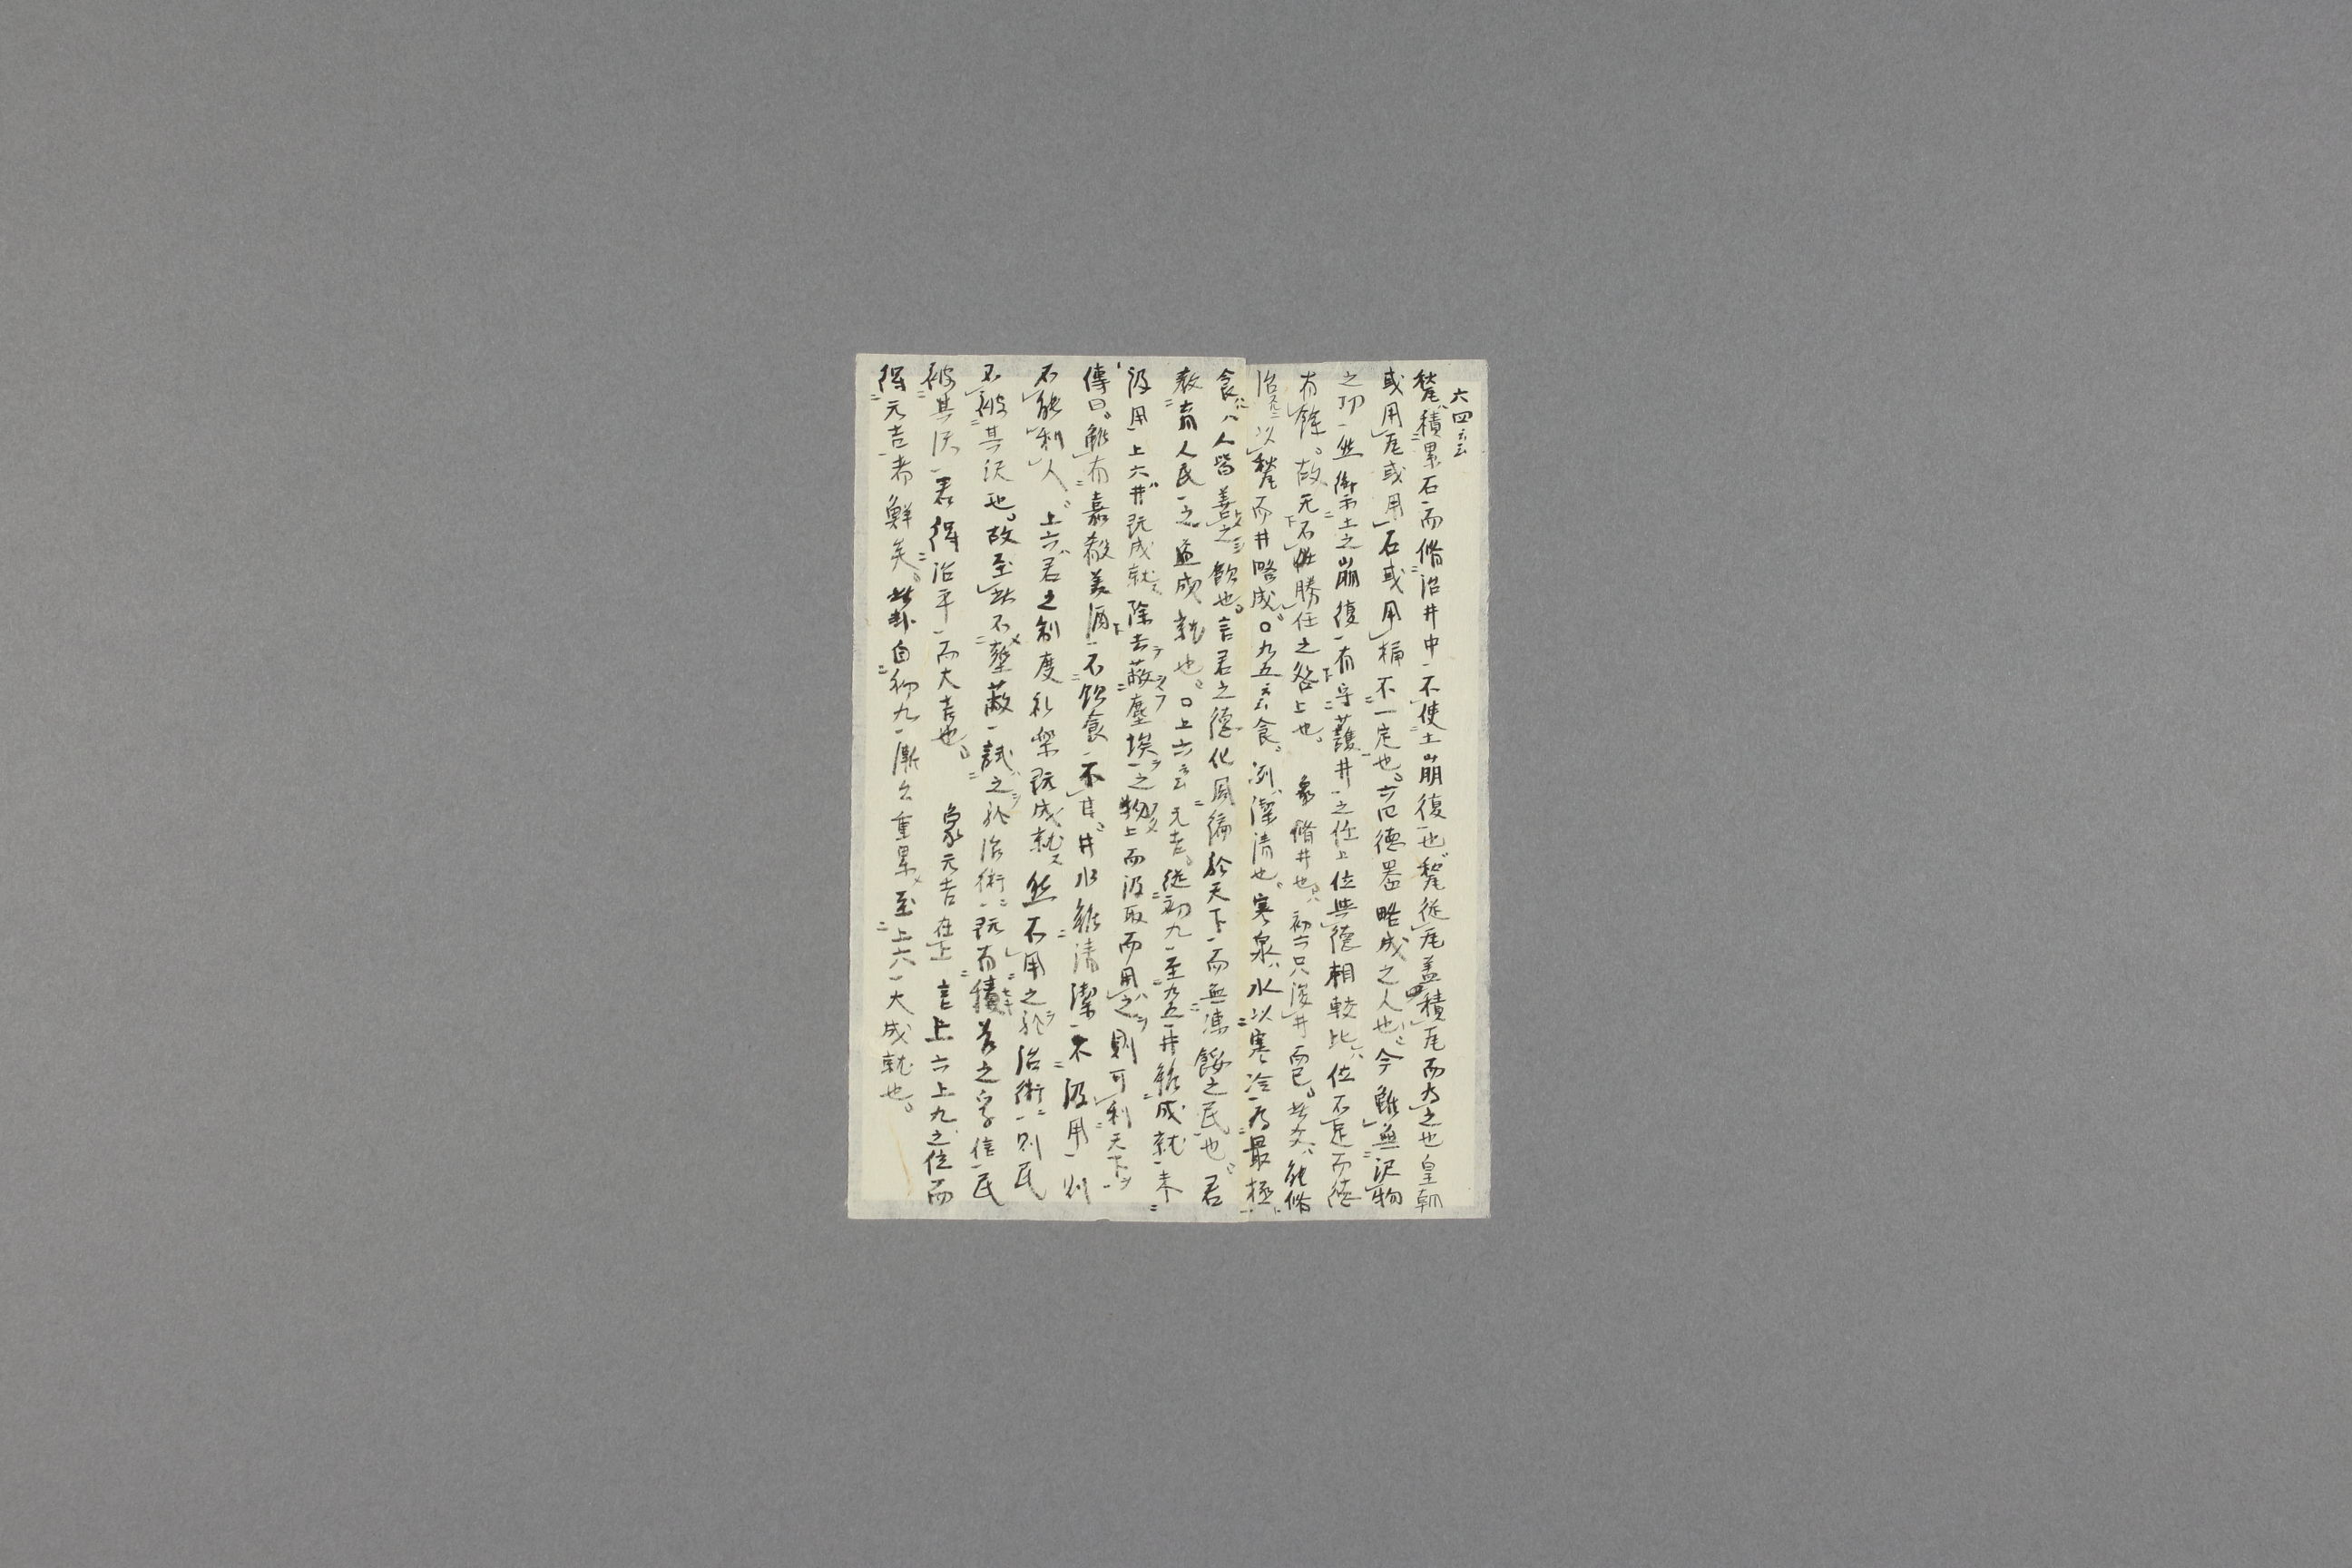 六四云云
甃積累石而脩治井中不使土崩復也甃從瓦蓋積瓦而為之也皇朝
或用瓦或用石或用桶不一定也。六四德器略成之人也今雖無沢物
之功然禦土之崩復有守護井之任上位與德相較比位不足而德
有餘。故无不勝任之咎上也。 象脩井也初六只浚井而已。此爻能脩
治以甃而井略成。〇九五云云食。洌潔清也寒泉水以寒冷為最極
食人皆善之飲也。言君之德化周徧於天下而無凍餒之民也君
教育人民之道成就也。〇上六云云元吉。從初九至九五井雖成就未
汲用上六井既成就除去蔽塵埃之物上而汲取而用之則可利天下
傳曰。雖有嘉殽美酒不飲食不甘井水雖清潔不汲用則
不能利人。上六君之制度礼樂既成就然不用之於治術則民
不被其沢也。故至此不壅蔽試之於治術既有積善之孚信民
被其沢君得治平而大吉也。 象元吉在上 言上六上九之位而
得元吉者鮮矣。此卦自初九漸々重累至上六大成就也。